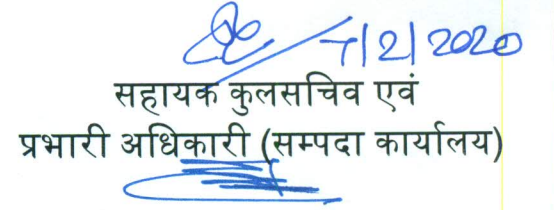 7/2/2020
सहायक कुलसचिव एवं
प्रभारी अधिकारी (सम्पदा कार्यालय)